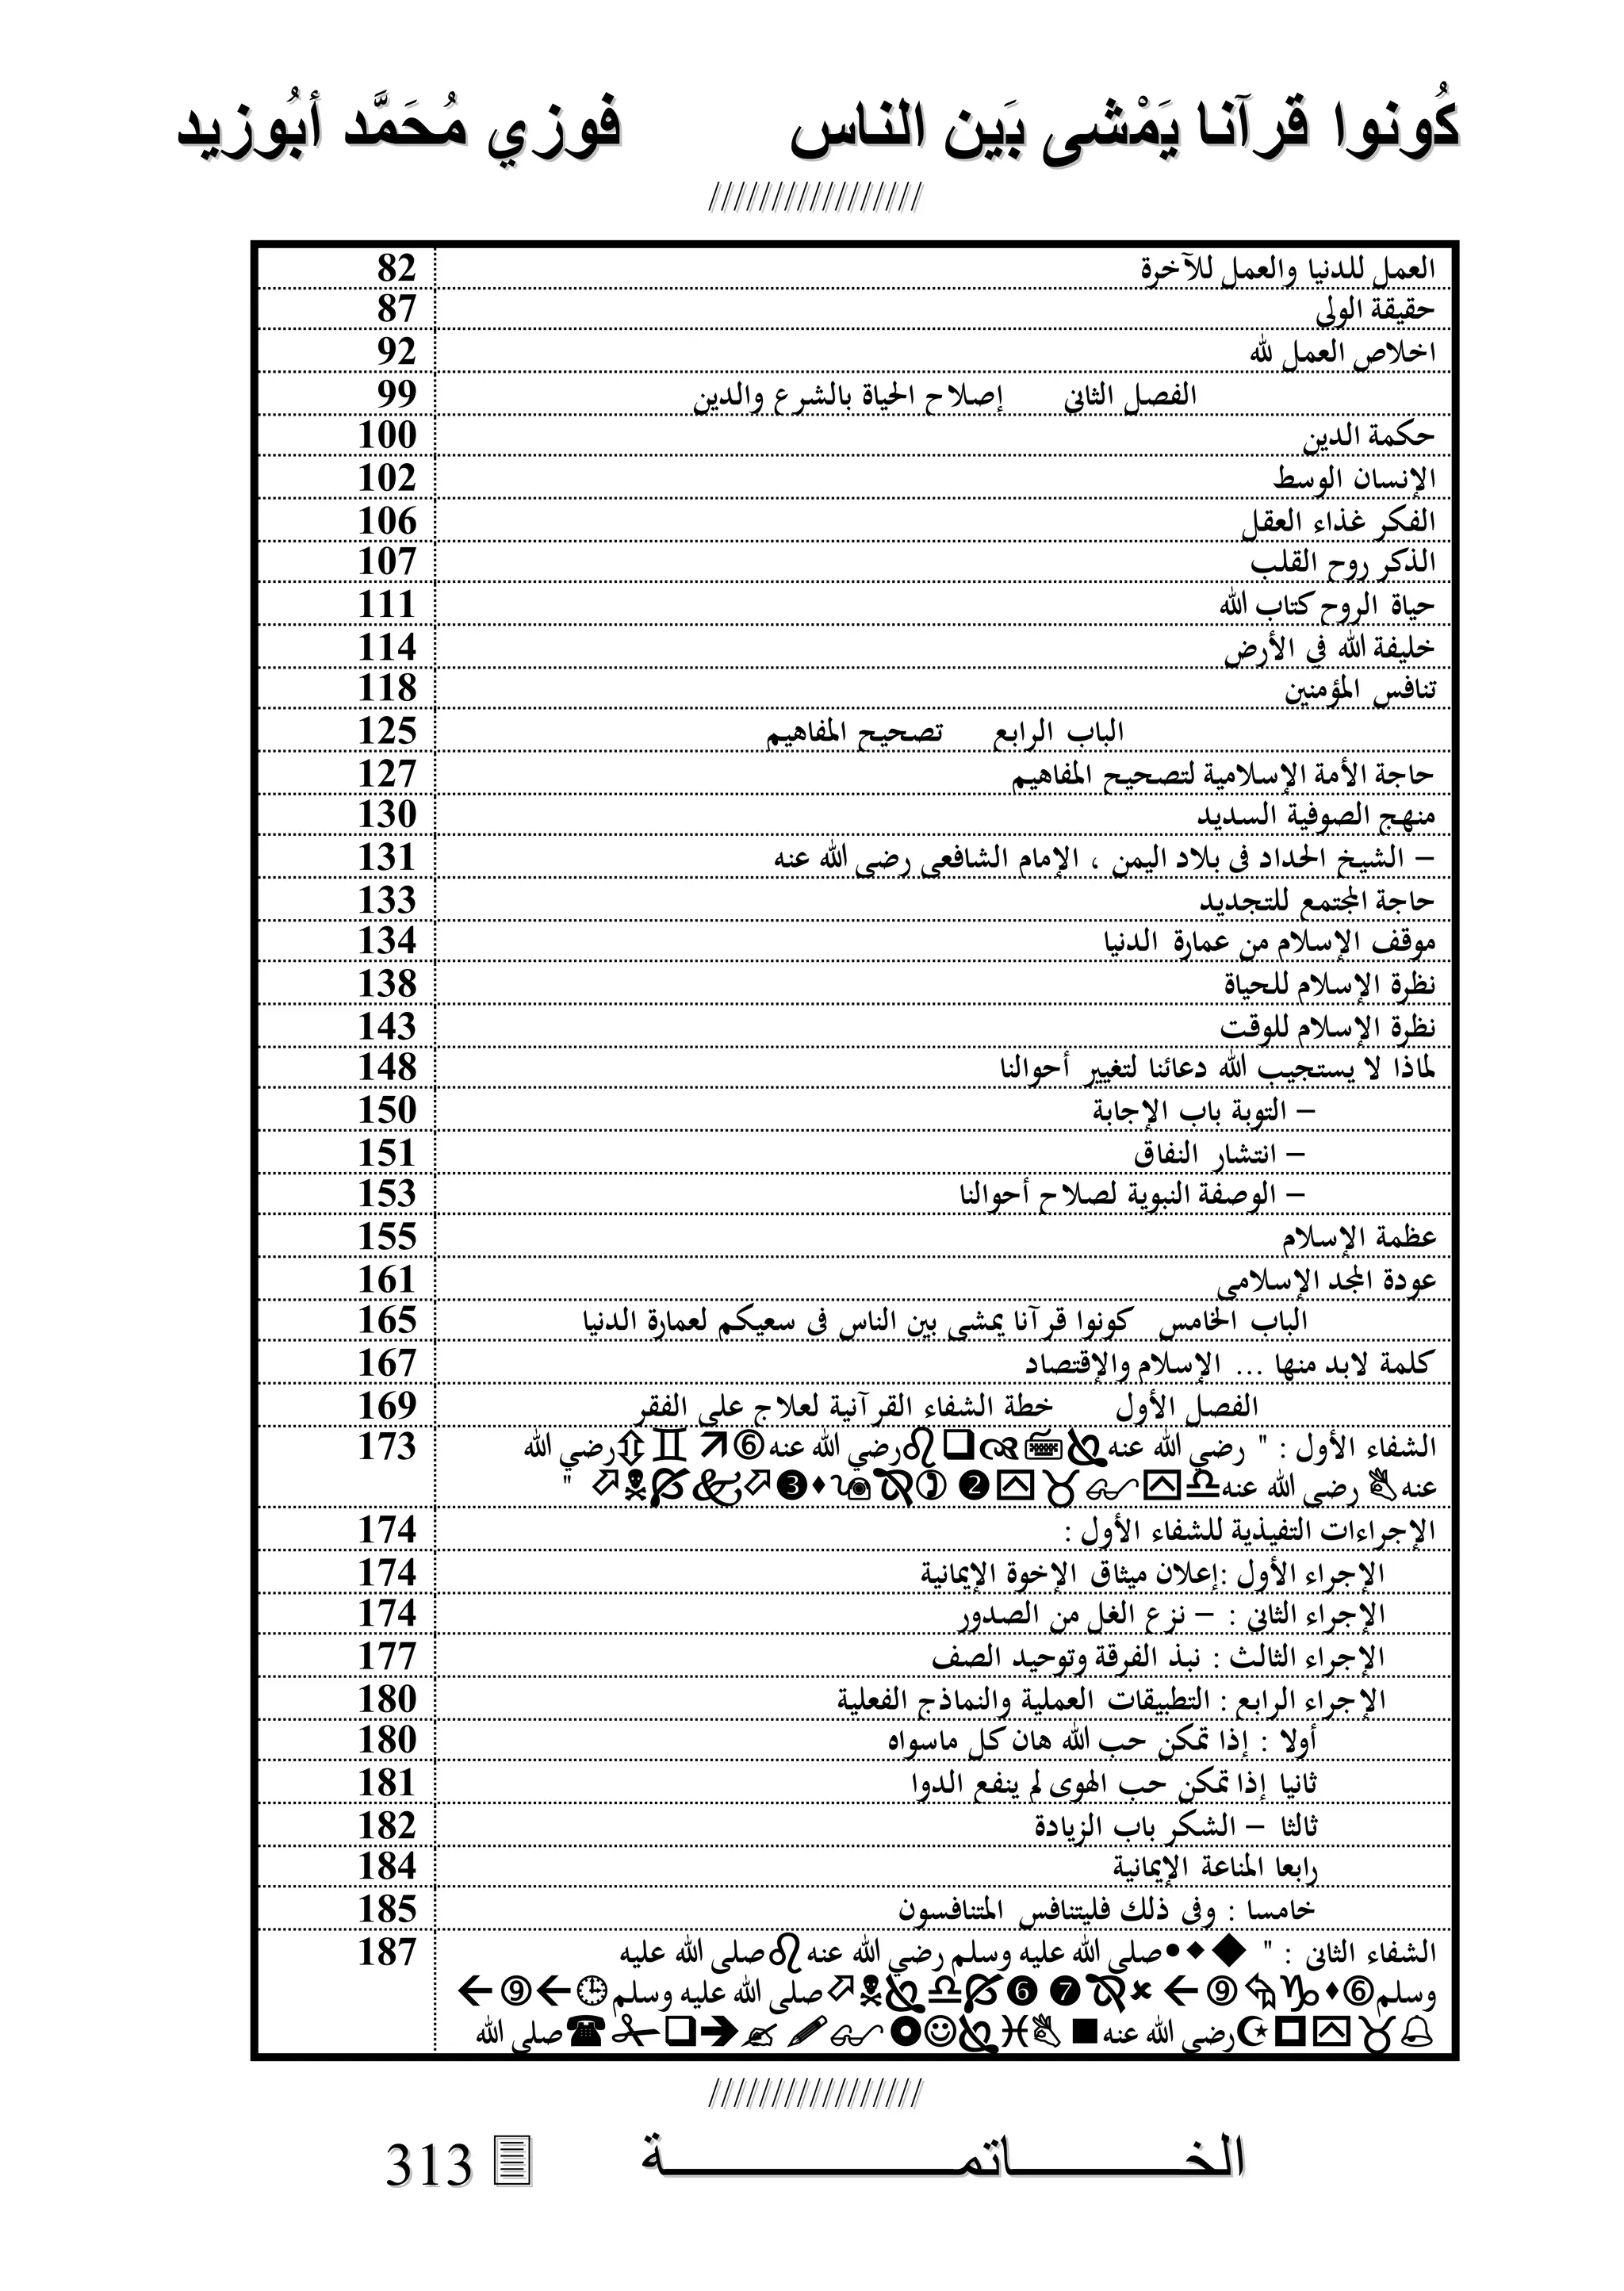 كُونوا قرآنا يَمْشى بَين الناس فوزي مُحَمَّد أبُوزيد
/////////////////
العمل للدنيا والعمل للآخرة 82
حقيقة الولى 87
اخلاص العمل لله 92
الفصل الثانى إصلاح الحياة بالشرع والدين 99
حكمة الدين 100
الإنسان الوسط 102
الفكر غذاء العقل 106
الذكر روح القلب 107
حياة الروح كتاب الله 111
خليفة الله في الأرض 114
تنافس المؤمنين 118
الباب الرابع تصحيح المفاهيم 125
حاجة الأمة الإسلامية لتصحيح المفاهيم 127
منهج الصوفية السديد 130
– الشيخ الحداد فى بلاد اليمن ، الإمام الشافعى رضى الله عنه 131
حاجة المجتمع للتجديد 133
موقف الإسلام من عمارة الدنيا 134
نظرة الإسلام للحياة 138
نظرة الإسلام للوقت 143
لماذا لا يستجيب الله دعائنا لتغيير أحوالنا 148
– التوبة باب الإجابة 150
– انتشار النفاق 151
– الوصفة النبوية لصلاح أحوالنا 153
عظمة الإسلام 155
عودة المجد الإسلامى 161
الباب الخامس كونوا قرآنا يمشى بين الناس فى سعيكم لعمارة الدنيا 165
كلمة لابد منها ... الإسلام والإقتصاد 167
الفصل الأول خطة الشفاء القرآنية لعلاج على الفقر 169
الشفاء الأول : " رضي الله عنه رضي الله عنه رضي الله 173
عنه رضى الله عنه "
الإجراءات التفيذية للشفاء الأول : 174
الإجراء الأول :إعلان ميثاق الإخوة الإيمانية 174
الإجراء الثانى : – نزع الغل من الصدور 174
الإجراء الثالث : نبذ الفرقة وتوحيد الصف 177
الإجراء الرابع : التطبيقات العملية والنماذج الفعلية 180
أولا : إذا تمكن حب الله هان كل ماسواه 180
ثانيا إذا تمكن حب الهوى لم ينفع الدوا 181
ثالثا – الشكر باب الزيادة 182
رابعا المناعة الإيمانية 184
خامسا : وفى ذلك فليتنافس المتنافسون 185
الشفاء الثانى : " صلى الله عليه وسلم رضي الله عنه صلى الله عليه 187
وسلم صلى الله عليه وسلم
رضى الله عنه صلى الله
/////////////////
الخـــــــاتمــــــــــــة 313